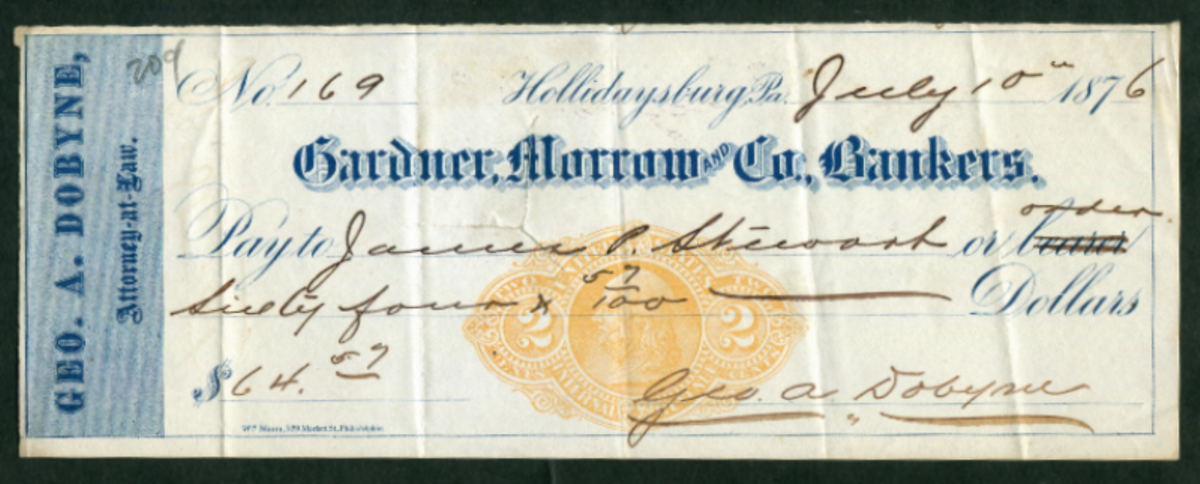 GEO. A. DOBYNE,
Attorney-at-Law.
209
No. 169 Hollidaysburg, Pa. July 10th 1876
Gardner, Morrow AND Co., Bankers.
Pay to James P. Stewart or bearer order
Sixty four & 57/100 Dollars
2 2
$64.57
Geo. A. Dobyne
Market St. Philadelphia